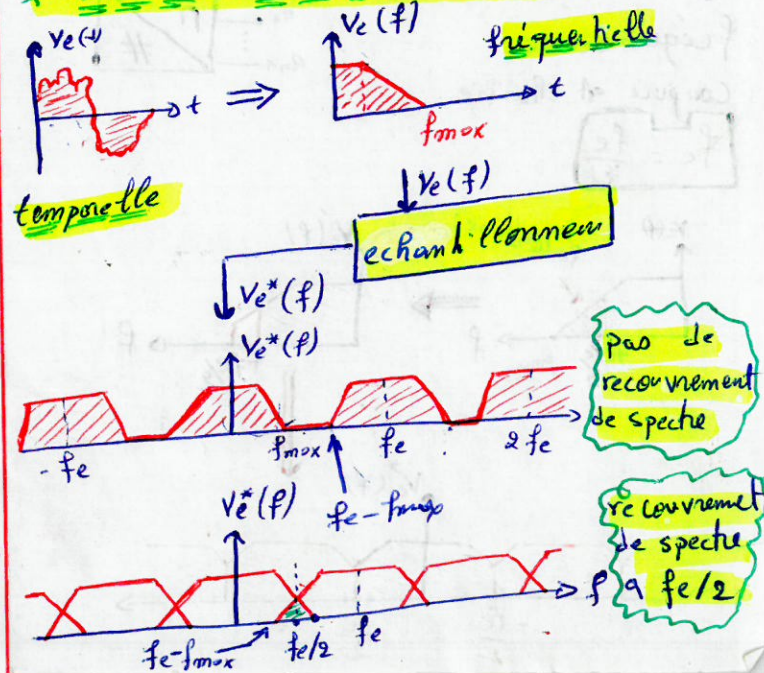 Ve(t)
Ve(f)
fréquentielle
t
⇒
t
fmax
temporelle
Ve(f)
echantillonneur
Ve*(f)
Ve*(f)
pas de
recouvrement
de spectre
-fe
fmax
fe
2fe
fe-fmax
Ve*(f)
recouvremet
de spectre
f
a fe/2
fe-fmax
fe/2
fe